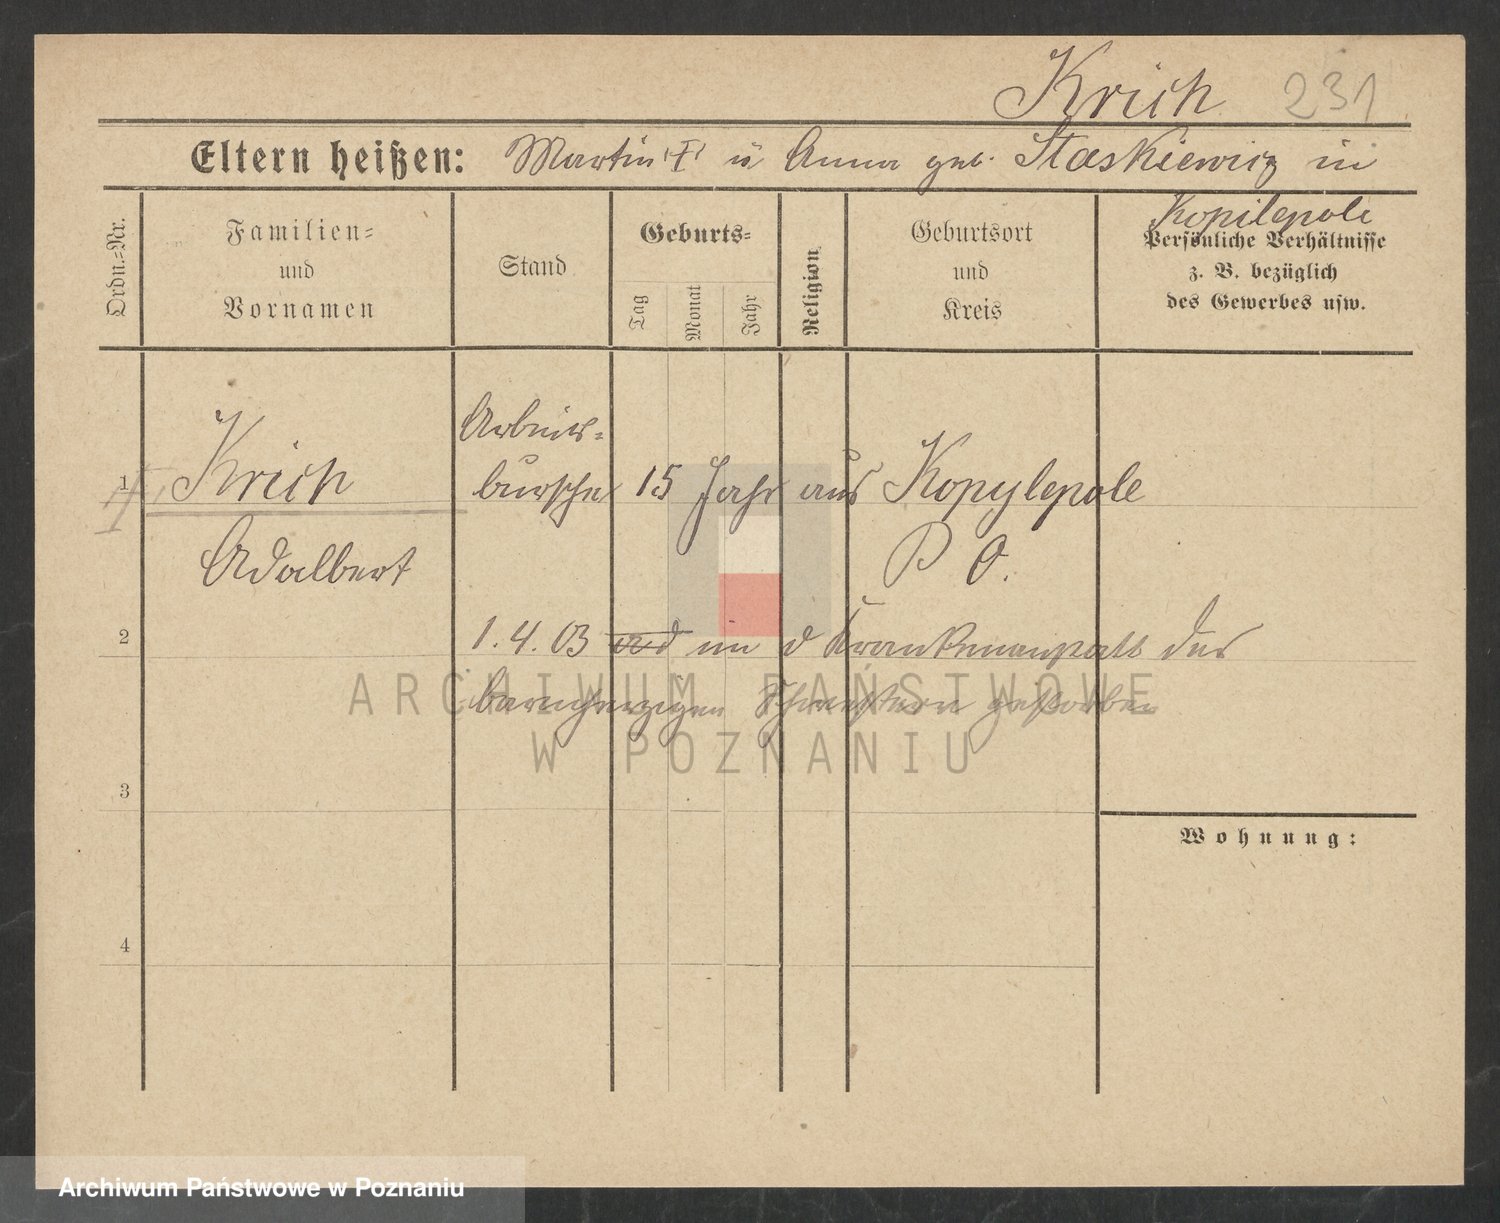 Krich 231
Eltern heißen: Martin "†" u Anna geb. Staskiewicz in
Kopilepole
Ordn.-Nr.
Familien-
und
Vornamen
Stand
Geburts-
Tag
Monat
Jahr
Religion
Geburtsort
und
Kreis
Persönliche Verhältnisse
z. B. bezüglich
des Gewerbes usw.
Arbeits-
1 Krich bursche 15 Jahr aus Kopylepole
Adalbert P O.
2 1.4.03 in d Krankenanstalt der
barmherzigen Schwestern gestorben
ARCHIWUM PAŃSTWOWE
W POZNANIU
3
Wohnung:
4
Archiwum Państwowe w Poznaniu